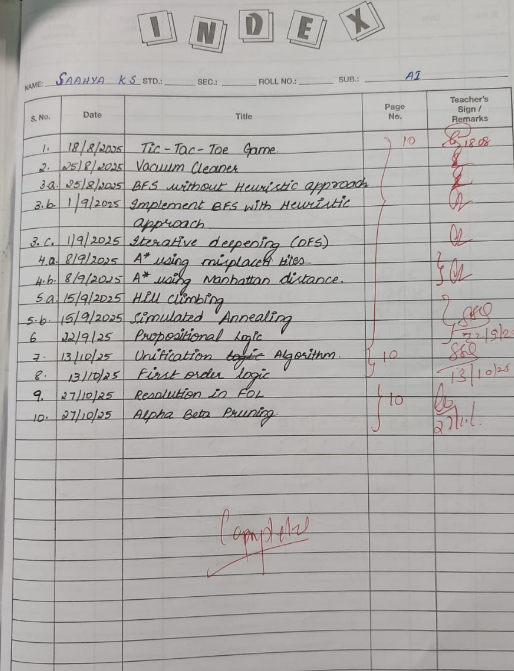 INDEX
NAME: SAAHYA KS STD.: SEC.: ROLL NO.: SUB.: AI
S. No. Date Title Page No. Teacher's Sign / Remarks
1. 18/8/2025 Tic-Tac-Toe Game 10 18.08
2. 25/8/2025 Vacuum Cleaner
3.a. 25/8/2025 BFS without Heuristic approach
3.b. 1/9/2025 Implement BFS with Heuristic
approach
3.c. 1/9/2025 Iterative deepening (DFS)
4.a. 8/9/2025 A* using misplaced tiles
4.b. 8/9/2025 A* using Manhattan distance.
5.a. 15/9/2025 Hill climbing
5.b. 15/9/2025 Simulated Annealing
6 22/9/25 Propositional Logic
7. 13/10/25 Unification Algorithm. 10
8. 13/10/25 First order logic 13/10/25
9. 27/10/25 Resolution in FOL 10
10. 27/10/25 Alpha Beta Pruning
Complete